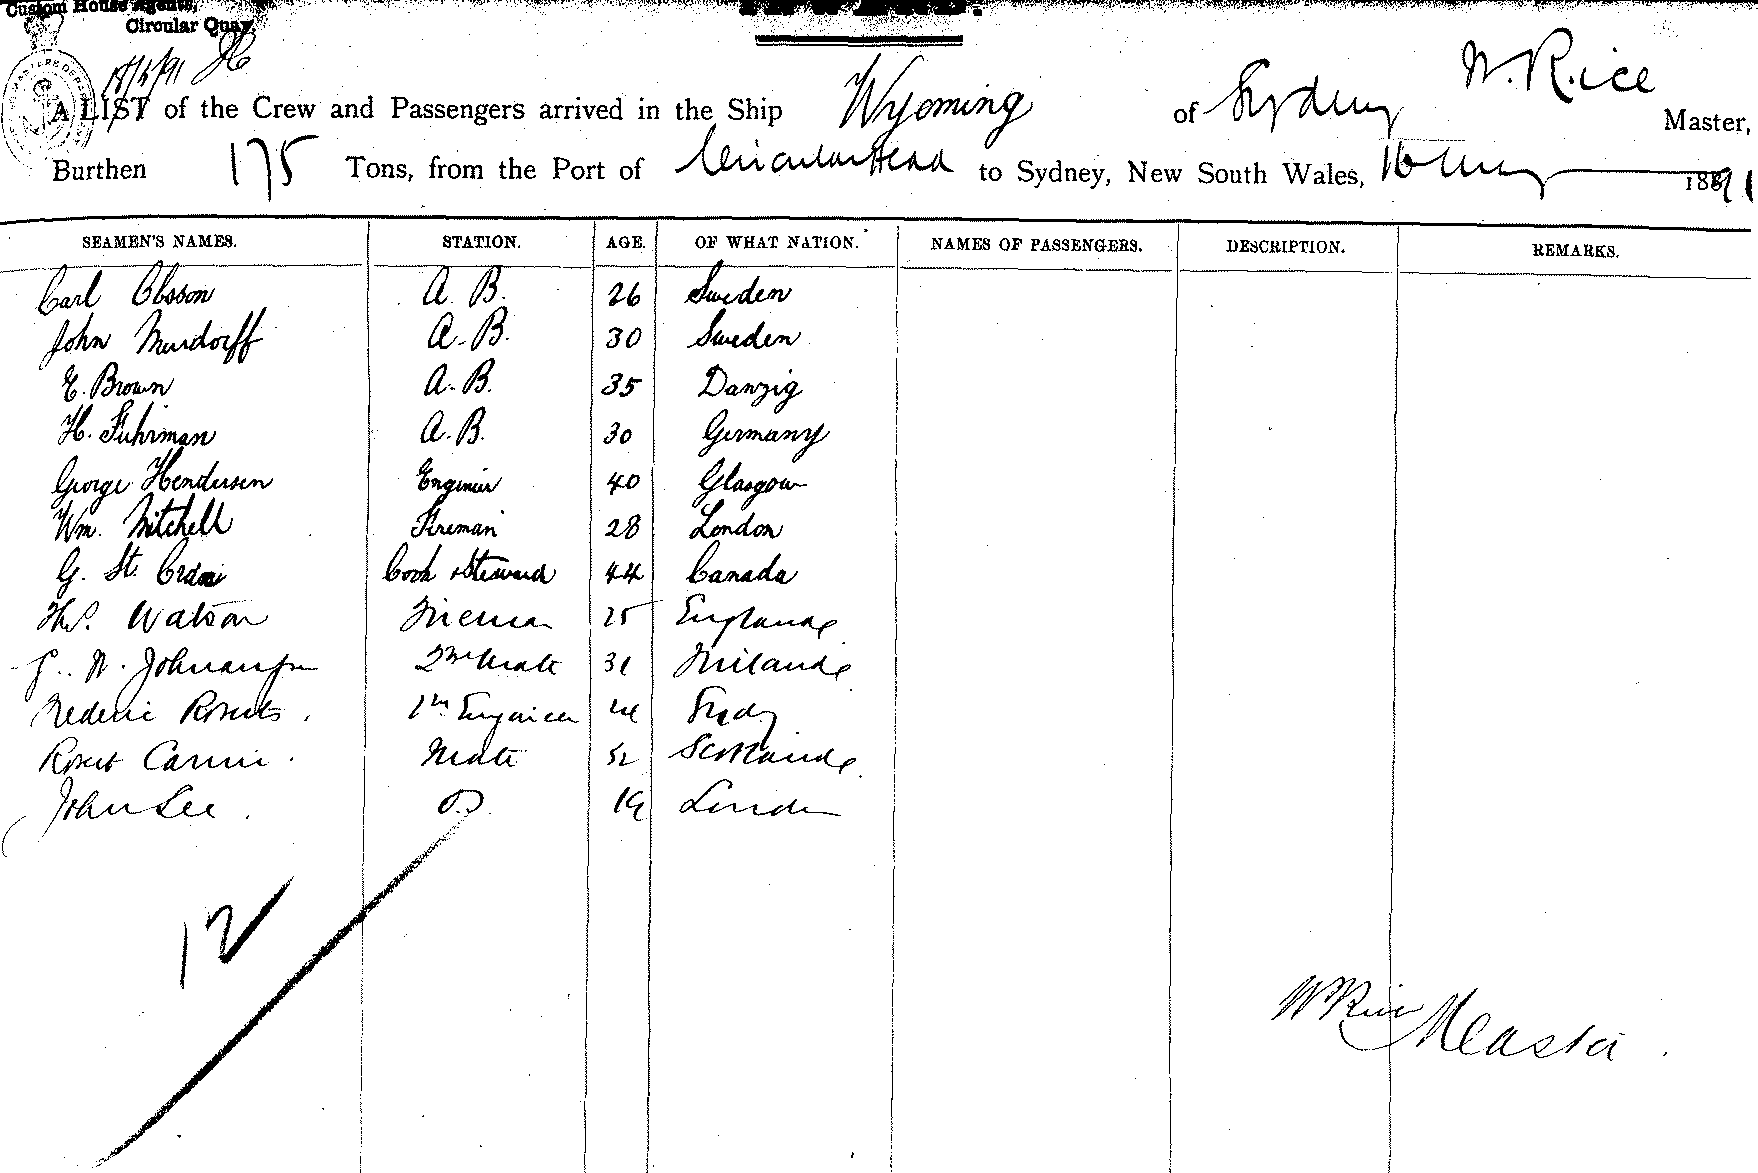 Custom House Agents,
Circular Quay.
18/5/91
A LIST of the Crew and Passengers arrived in the Ship Wyoming of Sydney W. Rice Master,
Burthen 175 Tons, from the Port of Circular Head to Sydney, New South Wales, 16 May 1891
SEAMEN'S NAMES. STATION. AGE. OF WHAT NATION. NAMES OF PASSENGERS. DESCRIPTION. REMARKS.
Carl Olsson A. B. 26 Sweden
John A. B. 30 Sweden
E. Brown A. B. 35 Danzig
H. Fuhrman A. B. 30 Germany
George Henderson Engineer 40 Glasgow
Wm. Mitchell Fireman 28 London
G. St. Cook & Steward 44 Canada
Watson Fireman 25 England
2nd Mate 31
Frederic Roberts Engineer
Robert Mate 52 Scotland
John Lee 19 London
12
W Rice Master